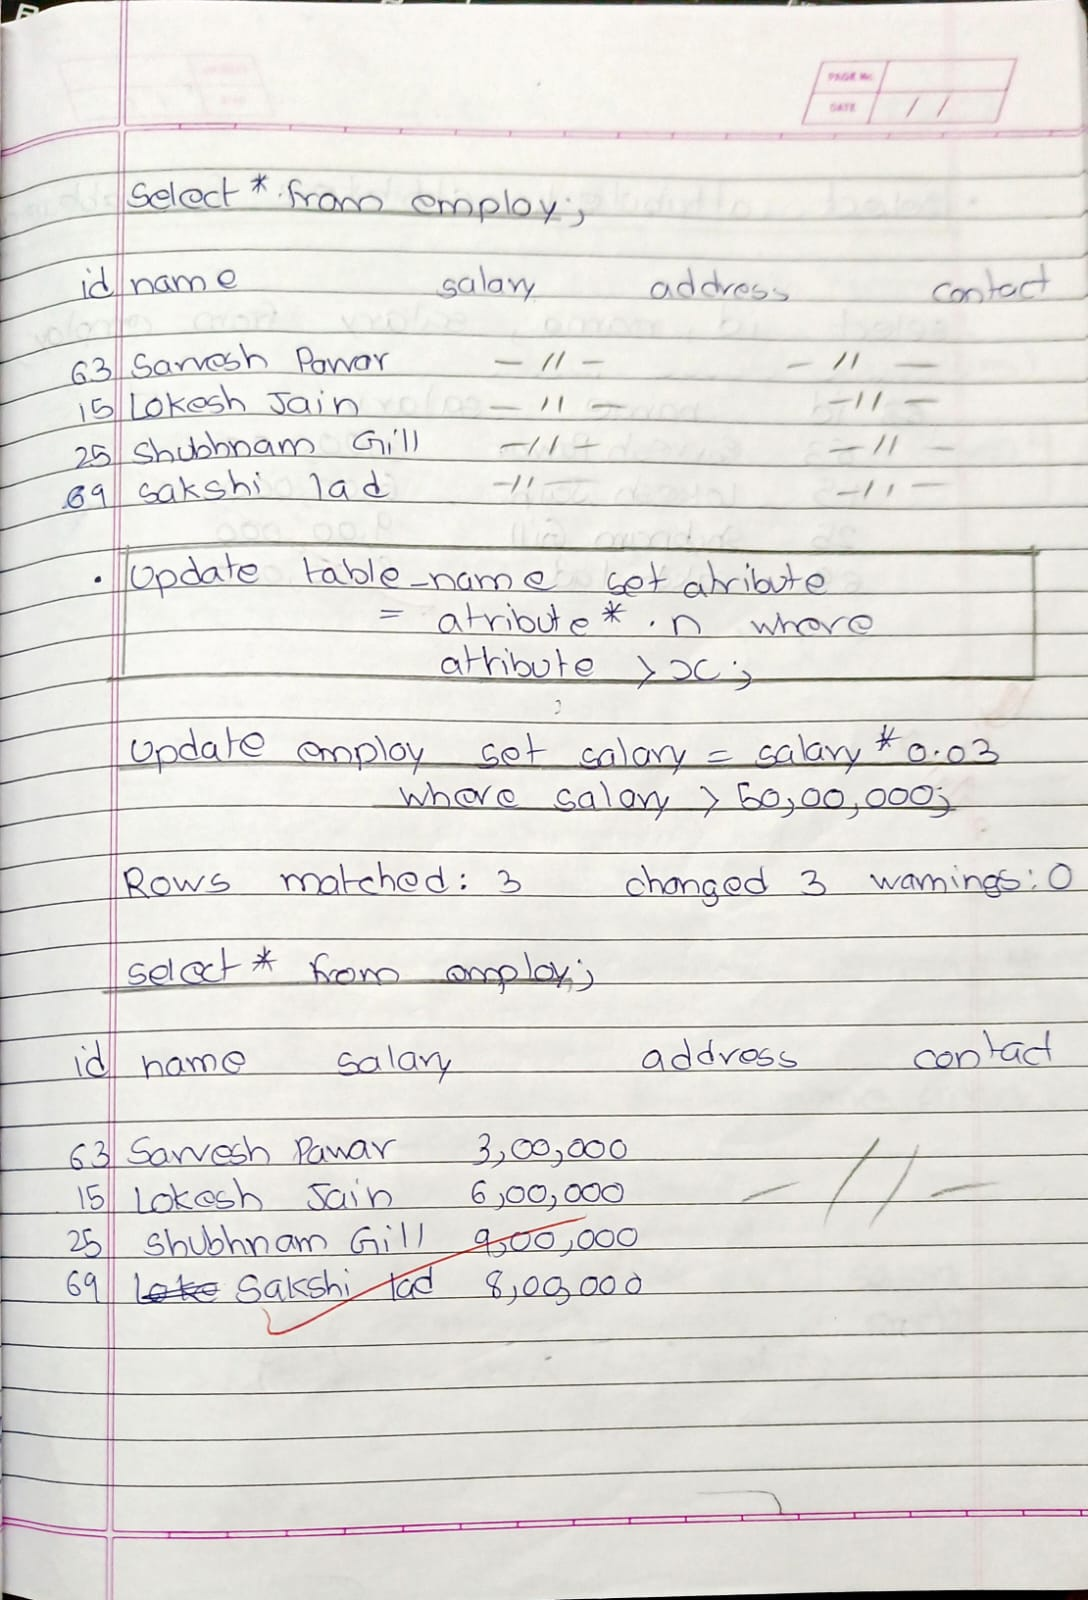 PAGE No.
DATE / /
Select * from employ;
id name salary address contact
63 Sarvesh Pawar - 11 - - 11 -
15 Lokesh Jain - 11 - - 11 -
25 Shubhnam Gill - 11 - - 11 -
69 Sakshi lad - 11 - - 11 -
. Update table_name set atribute
= atribute * . n where
attribute > x ;
Update employ set salary = salary * 0.03
where salary > 50,00,000;
Rows matched: 3 changed 3 warnings: 0
select * from employ;
id name salary address contact
63 Sarvesh Pawar 3,00,000 - // -
15 Lokesh Jain 6,00,000
25 Shubhnam Gill 9,00,000
69 Sakshi lad 8,00,000